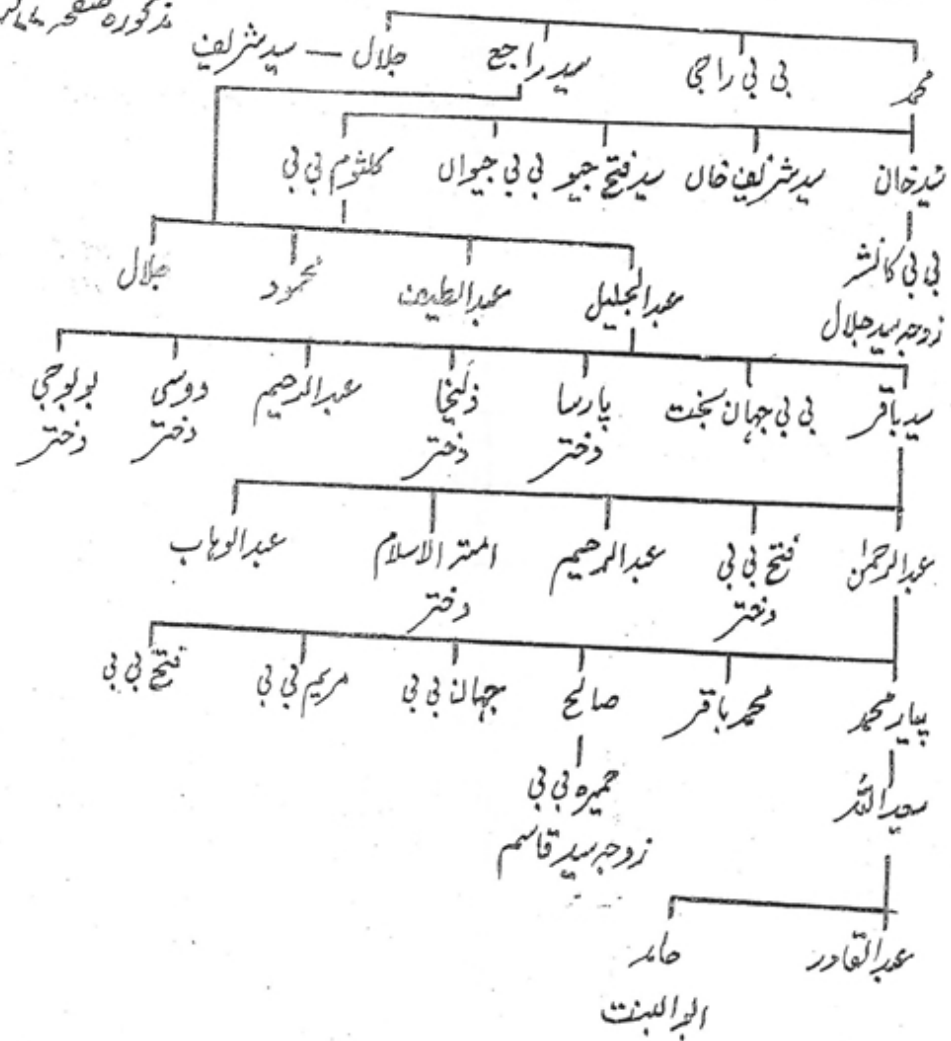 مذکورہ صفحہ
محمد بی بی راجی سید راجع جلال — سید شریف
سید خان سید شریف خان سید فتح جیو بی بی جیوان کلثوم بی بی
بی بی کانشر
زوجہ سید جلال
عبدالجلیل عبدالطیف محمود جلال
سید باقر بی بی جہان بخت پارسا ذلیخا عبدالرحیم دوسی بوبوجی
دختر دختر دختر دختر
عبدالرحمٰن فتح بی بی عبدالرحیم امتہ الاسلام عبدالوہاب
دختر دختر
پیار محمد محمد باقر صالح جہان بی بی مریم بی بی فتح بی بی
سعید اللہ حمیرہ بی بی
زوجہ سید قاسم
عبدالقادر حامد
ابو البنت